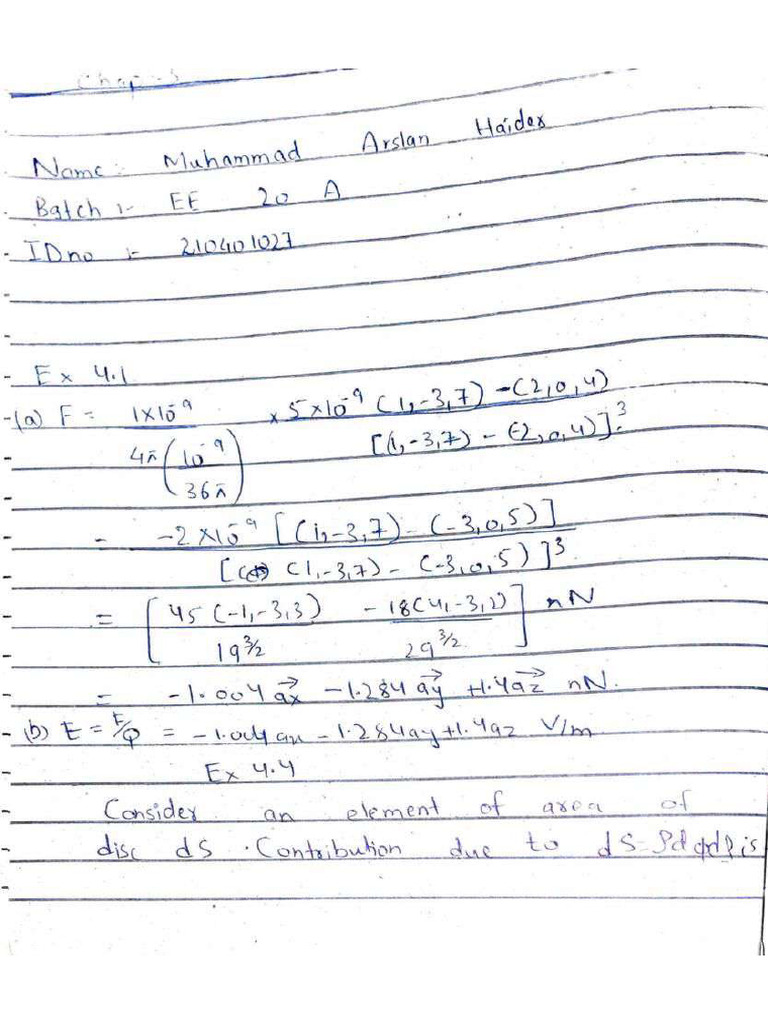 Chap-3
Name :- Muhammad Arslan Haider
Batch :- EE 20 A
ID no :- 210401027
Ex 4.1
(a) F = 1×10⁻⁹ / 4π(10⁻⁹/36π) × 5×10⁻⁹ (1,-3,7) - (2,0,4) / [(1,-3,7) - (2,0,4)]³
- -2×10⁻⁹ [(1,-3,7) - (-3,0,5)] / [(1,-3,7) - (-3,0,5)]³
= [45(-1,-3,3) / 19^3/2 - 18(4,-3,2) / 29^3/2] nN
= -1.004 ax - 1.284 ay + 1.4 az nN.
(b) E = F/Q = -1.004ax - 1.284ay + 1.4az V/m
Ex 4.4
Consider an element of area of
disc dS . Contribution due to dS = ρdφdρ is